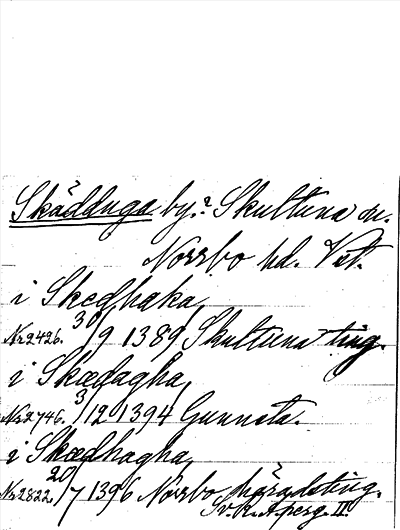 Skädduga by.? Skultuna sn.
Norrbo hd. Vst.
i Skedhaka,
Nr 2426. 30/9 1389 Skultuna ting.
i Skædagha,
Nr 2746. 3/12 1394 Gunnsta.
i Skædhagha,
Nr 2822. 20/7 1396 Norrbo häradsting.
Sv. R. A. perg. II.